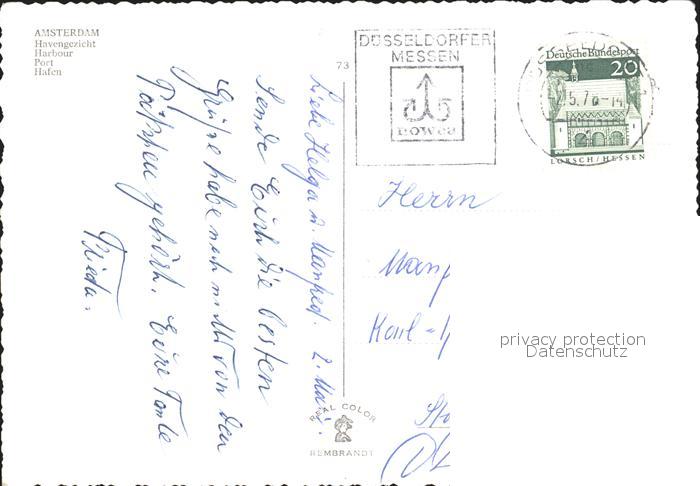 AMSTERDAM
Havengezicht
Harbour
Port
Hafen
73
DÜSSELDORFER
MESSEN
Deutsche Bundespost
20
LORSCH/HESSEN
Liebe Helga u. Manfred. 2. Mai.
Sende Euch die besten
Grüße habe noch nichts von den
Päßchen gehört. Eure Tante
Frieda.
Herrn
Karl-
privacy protection
Datenschutz
REAL COLOR
REMBRANDT